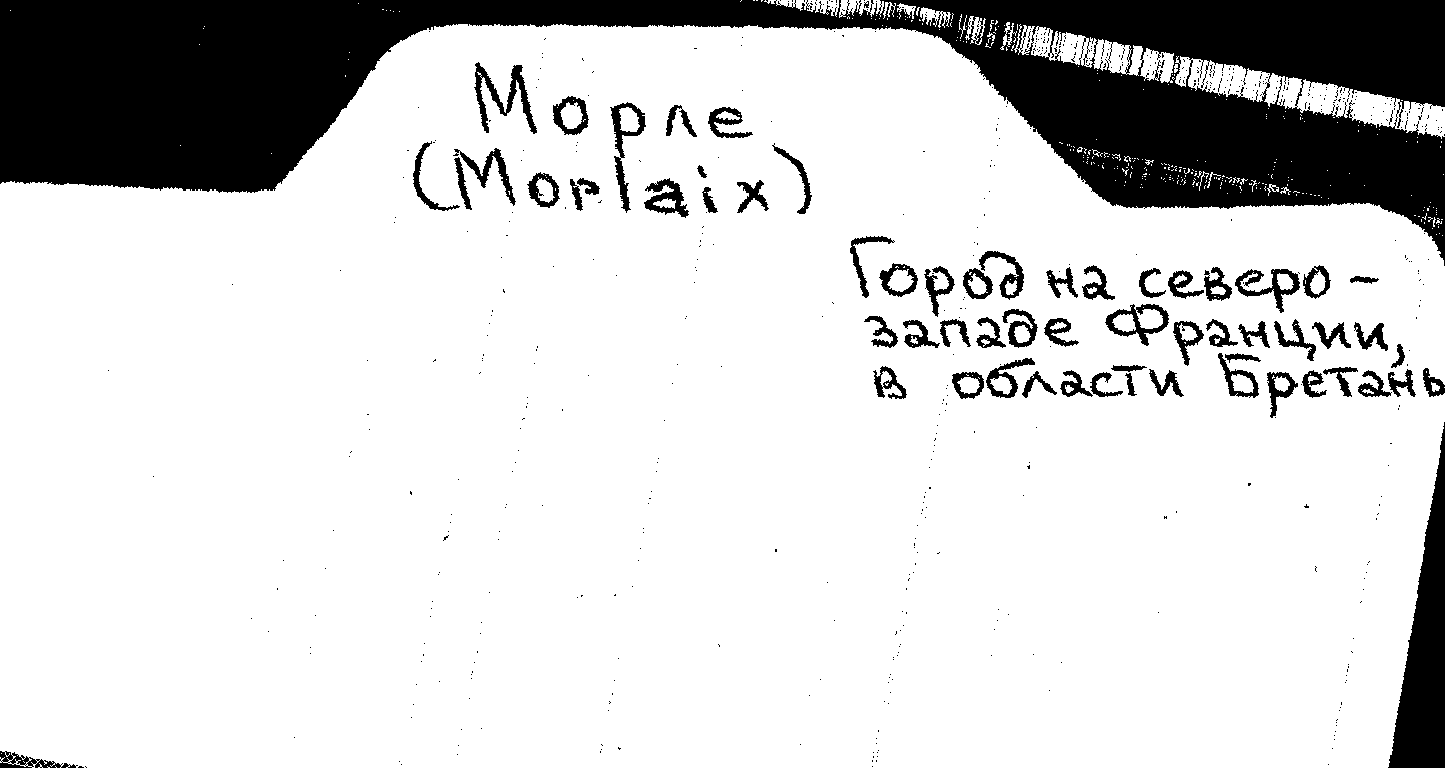 Морле
(Morlaix)
Город на северо-
западе Франции,
в области Бретань